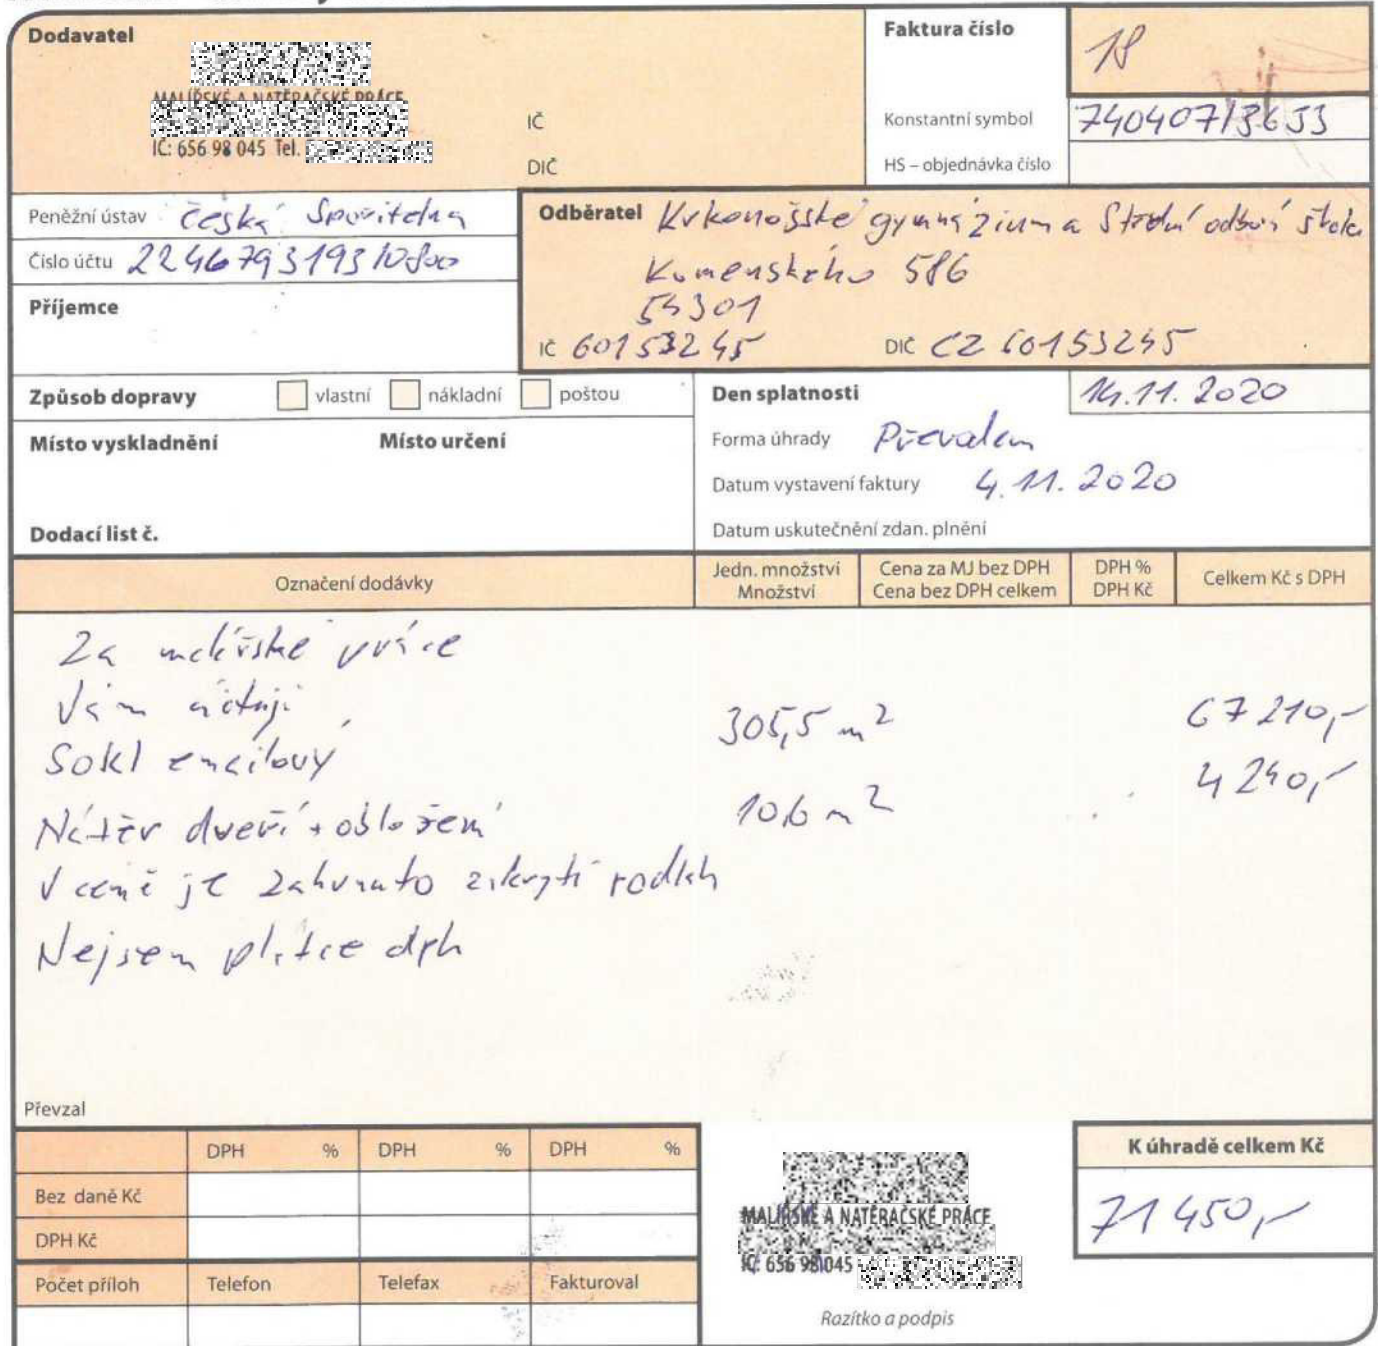 Dodavatel
MALÍŘSKÉ A NATĚRAČSKÉ PRÁCE
IČ: 656 98 045 Tel.
IČ
DIČ
Faktura číslo 18
Konstantní symbol 740407/3633
HS – objednávka číslo
Peněžní ústav Česká Spořitelna
Číslo účtu 2246793193/0800
Příjemce
Odběratel Krkonošské gymnázium a Střední odborná škola
Komenského 586
54301
IČ 60153245 DIČ CZ 60153245
Způsob dopravy vlastní nákladní poštou
Místo vyskladnění Místo určení
Dodací list č.
Den splatnosti 14.11.2020
Forma úhrady Převodem
Datum vystavení faktury 4.11.2020
Datum uskutečnění zdan. plnění
Označení dodávky
Jedn. množství
Množství
Cena za MJ bez DPH
Cena bez DPH celkem
DPH %
DPH Kč
Celkem Kč s DPH
Za malířské práce
Vám účtuji
Sokl emailový 305,5 m2 67 210,-
Nátěr dveří + obložení 10,6 m2 4 240,-
V ceně je zahrnuto zakrytí
Nejsem plátce dph
Převzal
DPH % DPH % DPH %
Bez daně Kč
DPH Kč
Počet příloh Telefon Telefax Fakturoval
MALÍŘSKÉ A NATĚRAČSKÉ PRÁCE
IČ: 656 98 045
Razítko a podpis
K úhradě celkem Kč
71 450,-